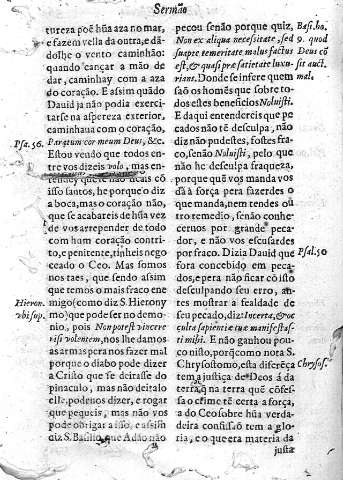 Sermão
tureza poẽ hũa aza no mar,
e fazem vella da outra, e dá-
dolhe o vento caminhão:
quando cançar a mão de
dar, caminhay com a aza
do coração. E assim quãdo
Dauid ja não podia exerci-
tarse na aspereza exterior,
caminhaua com o coração,
Psa. 56. Paratum cor meum Deus, &c.
Estou vendo que todos en-
tre vos dizeis volo, mas en-
tendey que não ficais cõ
isso santos, he porque o diz
a boca, mas o coração não,
que se acabareis de hũa vez
de vos arrepender de todo
com hum coração contri-
to, e penitente, tinheis nego-
ceado o Ceo. Mas somos
nos taes, que sendo assim
que temos o mais fraco ene
Hieron. migo (como diz S. Hierony
vbi sup. mo) que pode ser no demo-
nio, pois Non potest vincere
nisi volentem, nos lhe damos
as armas pera nos fazer mal
porque o diabo pode dizer
a Cristo que se deitasse do
pinaculo, mas não deitalo
elle, podenos dizer, e rogar
que pequeis, mas não vos
pode obrigar a isso, e assim
diz S. Basilio, que Adão não
pecou senão porque quiz, Basi. ho.
Non ex aliqua necessitate, sed 9. quod
suapte temeritate malus factus Deus cõ
est, & quasi præ satietate luxu- sit auct.
rians. Donde se infere quem mal.
saõ os homẽs que sobre to-
dos estes beneficios Noluisti.
E daqui entendereis que pe
cados não tẽ desculpa, não
diz não pudestes, fostes fra-
co, senão Noluisti, pelo que
não he desculpa fraqueza,
porque quẽ vos manda vos
dá à força pera fazerdes o
que manda, nem tendes ou
tro remedio, senão conhe-
ceruos por grande peca-
dor, e não vos escusardes
por fraco. Dizia Dauid que Psal. 50
fora concebido em peca-
dos, e pera não ficar cõ isto
desculpando seu erro, an-
tes mostrar a fealdade de
seu pecado, diz: Incerta, & oc
culta sapientiæ tuæ manifestas-
ti mihi. E não ganhou pou-
co nisto, porq̃ como nota S.
Chrysostomo, esta diferẽça Chrysos.
tem a justiça de Deos á da
terra, q̃ na terra quẽ cõfes-
sa o crime tẽ certa a força,
a do Ceo sobre hũa verda-
deira confissaõ tem a glo-
ria, e o que era materia da
justa